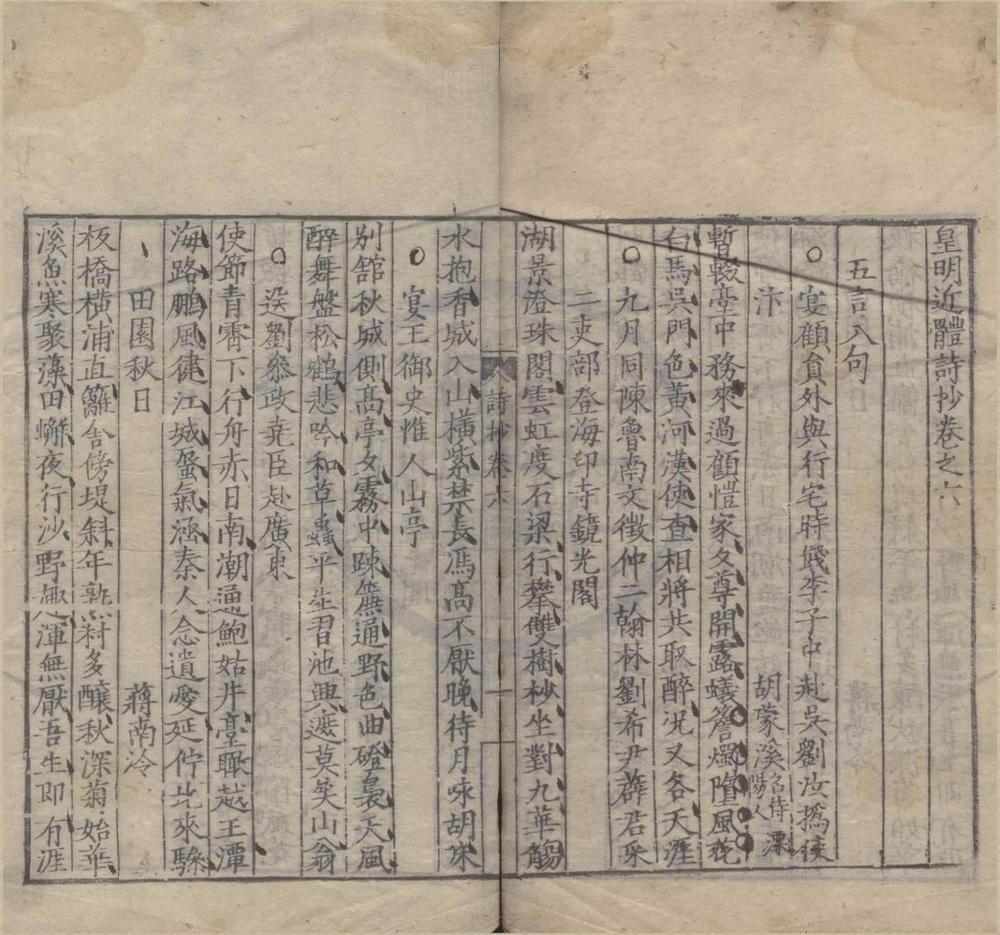 皇明近體詩抄卷之六
五言八句
宴顧員外與行宅時餞李子中赴吳劉汝撝使
汴 胡蒙溪名侍溧陽人
暫輟臺中務來過顧愷家夕尊開露蟻簷燭墮風花
白馬吳門色黃河漢使查相將共取醉況又各天涯
九月同陳魯南文徵仲二翰林劉希尹薛君采
二吏部登海印寺鏡光閣
湖景澄珠閣雲虹度石梁行攀雙樹杪坐對九華觴
詩抄卷六 一
水抱香城入山橫紫禁長馮高不厭晚待月咏胡牀
宴王御史惟人山亭
別舘秋城側高亭夕霧中踈簾通野色曲磴裊天風
醉舞盤松鶴悲吟和草蟲平生習池興遮莫笑山翁
送劉叅政堯臣赴廣東
使節青霄下行舟赤日南潮通鮑姑井臺瞰越王潭
海路鵬風徤江城蜃氣涵秦人念遺愛延佇北來驂
田園秋日 蔣南泠
板橋橫浦直籬舍傍堤斜年熟料多釀秋深菊始華
溪魚寒聚藻田蠏夜行沙野趣渾無厭吾生即有涯